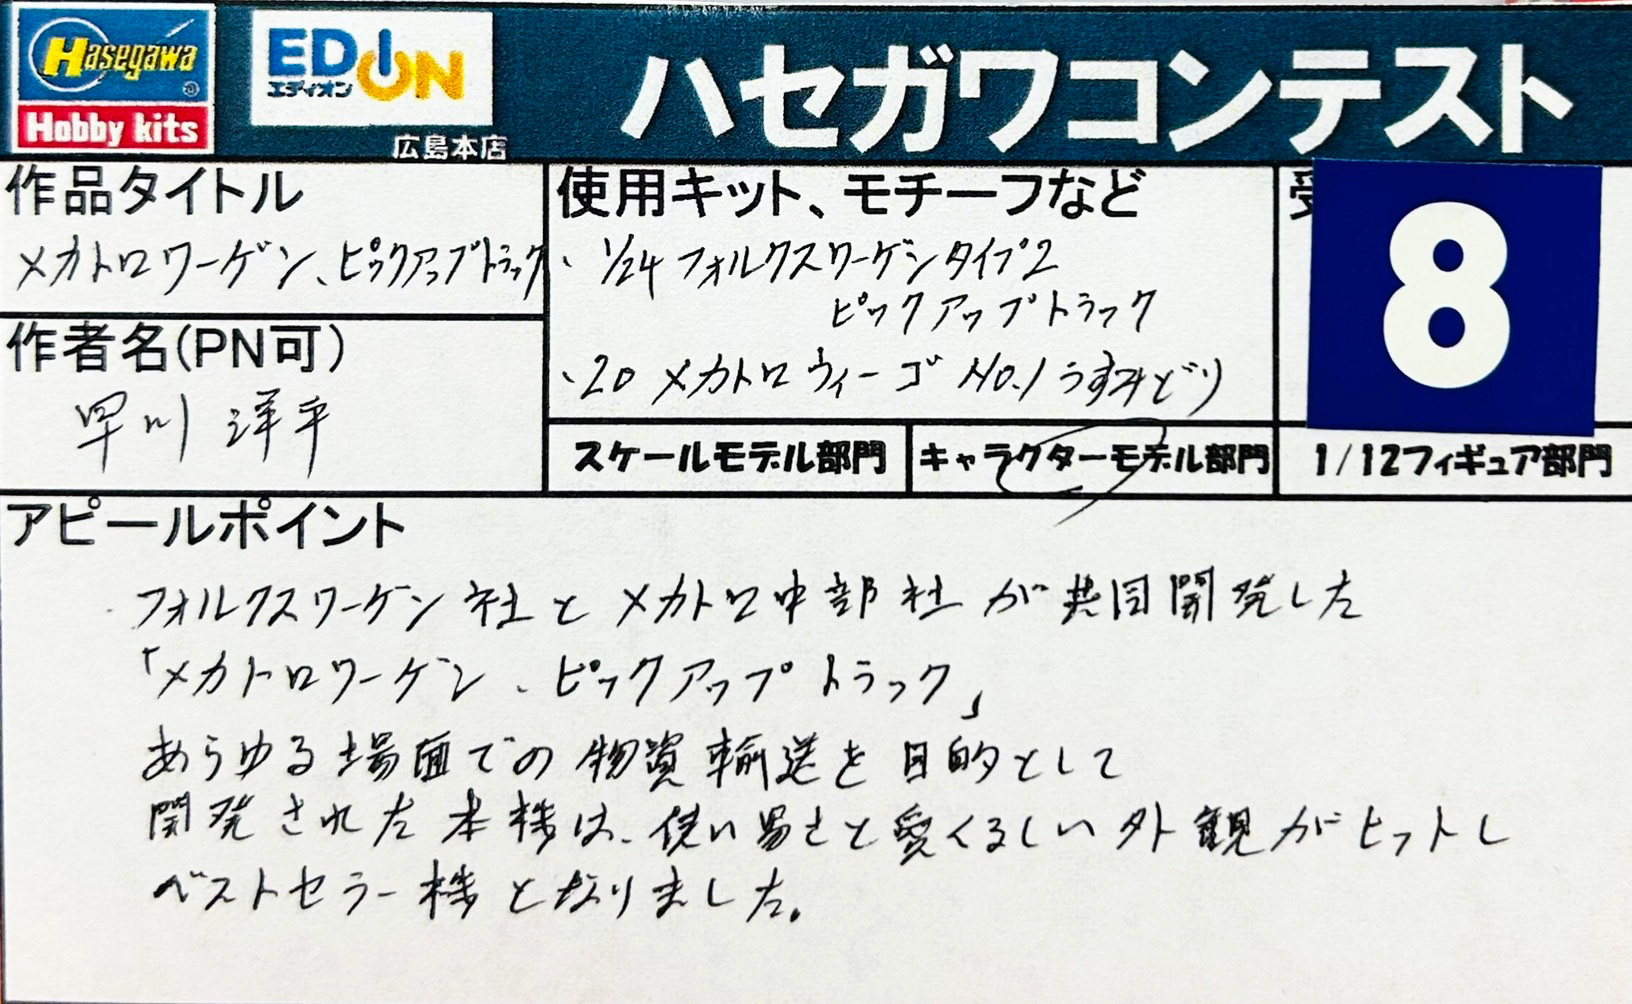 Hasegawa
Hobby kits
EDION
エディオン
広島本店
ハセガワコンテスト
作品タイトル
メカトロワーゲン、ピックアップトラック
作者名(PN可)
早川 洋平
使用キット、モチーフなど
・1/24 フォルクスワーゲンタイプ2
ピックアップトラック
・20 メカトロウィーゴ No.1 うすみどり
受
8
スケールモデル部門
キャラクターモデル部門
1/12フィギュア部門
アピールポイント
フォルクスワーゲン社とメカトロ中部社が共同開発した
「メカトロワーゲン、ピックアップトラック」
あらゆる場面での物資輸送を目的として
開発された本機は、使い易さと愛くるしい外観がヒットし
ベストセラー機となりました。